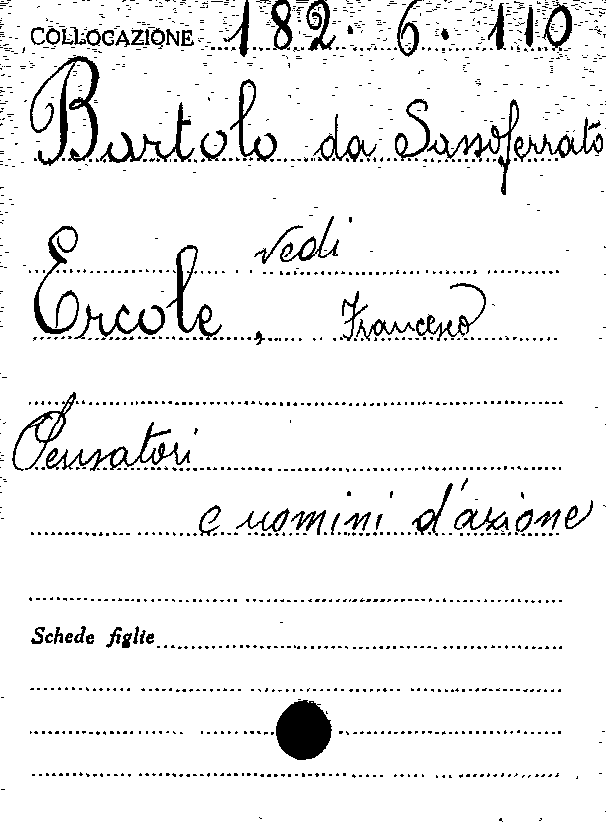 COLLOCAZIONE 182. 6. 110
Bartolo da Sassoferrato
vedi
Ercole, Francesco
Pensatori
e uomini d'azione
Schede figlie